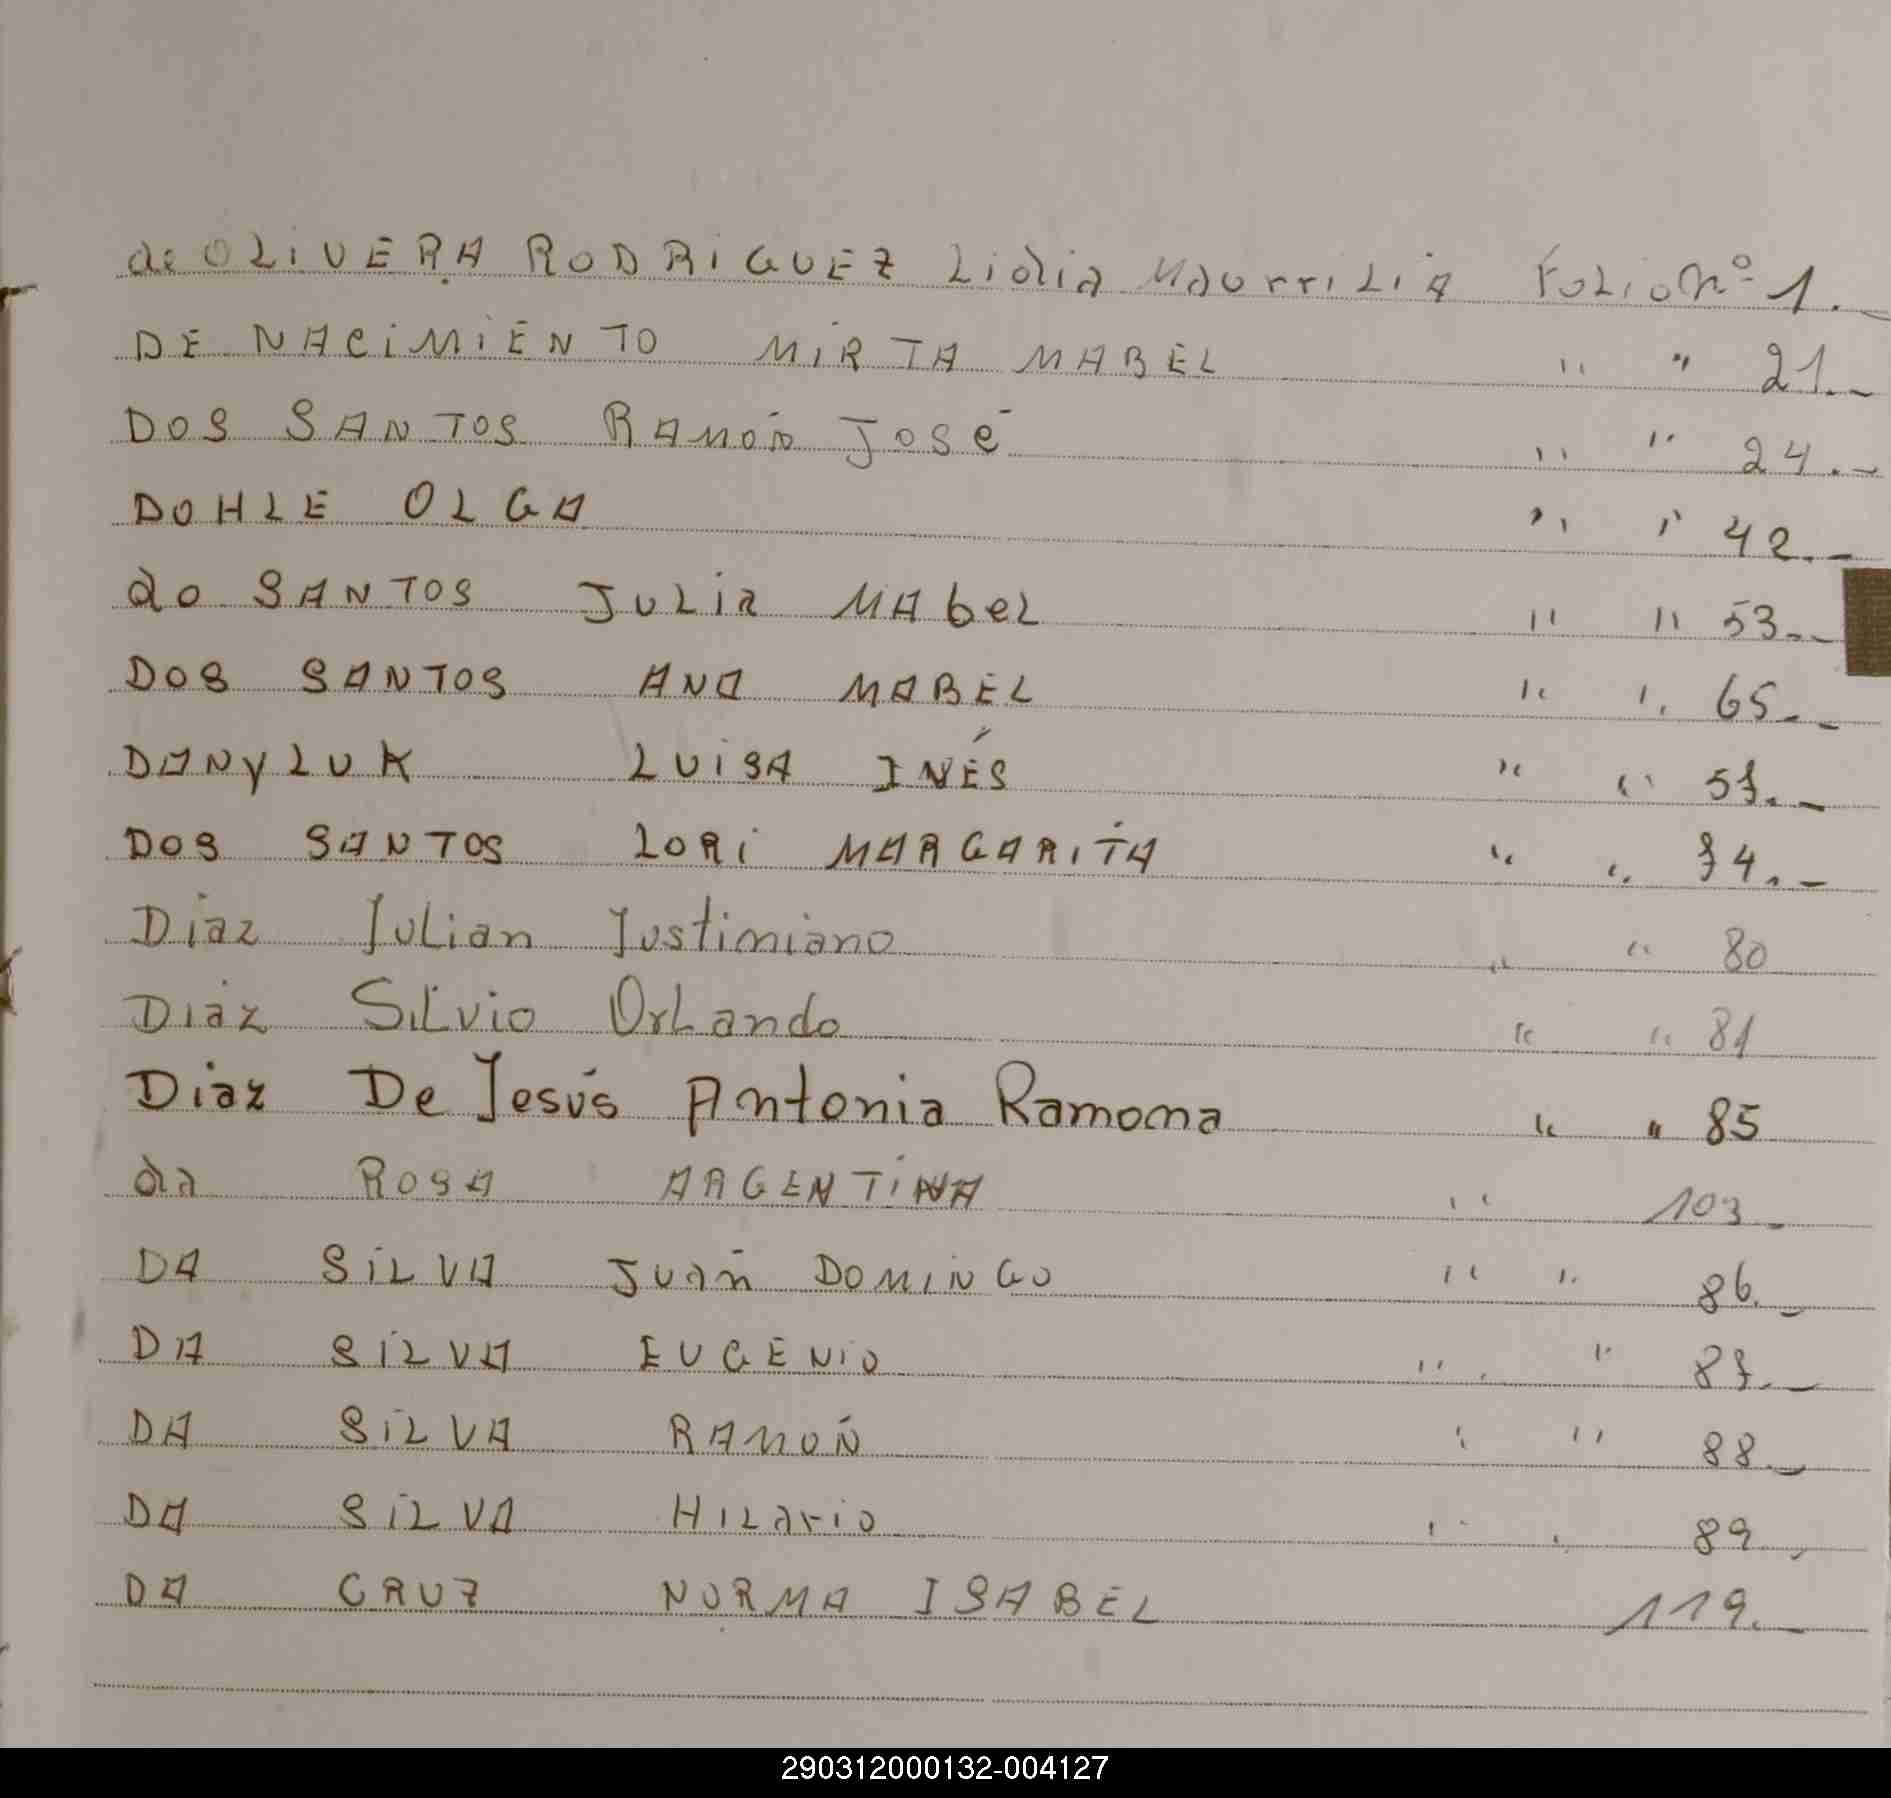 de OLIVERA RODRIGUEZ Lidia MaurriLiA FoLio Nº 1.
DE NACIMIENTO MIRTA MABEL " " 21._
DOS SANTOS RAMÓN José " " 24._
DOHLE OLGA " " 42._
do SANTOS JULIA MAbeL " " 53._
DOS SANTOS ANA MABEL " " 65._
DANyLUK LUISA INÉS " " 57._
DOS SANTOS LORI MARGARITA " " 74._
Diaz Julian Justiniano " " 80
Diaz SiLvio OrLando " " 81
Diaz De Jesús Antonia Ramona " " 85
da ROSA ARGENTINA " 103_
DA SILVA Juan DOMINGO " " 86._
DA SILVA EUGENIO " " 87._
DA SILVA RAMÓN " " 88._
DA SILVA HILario " " 89._
DA CRUZ NORMA ISABEL 119._
290312000132-004127